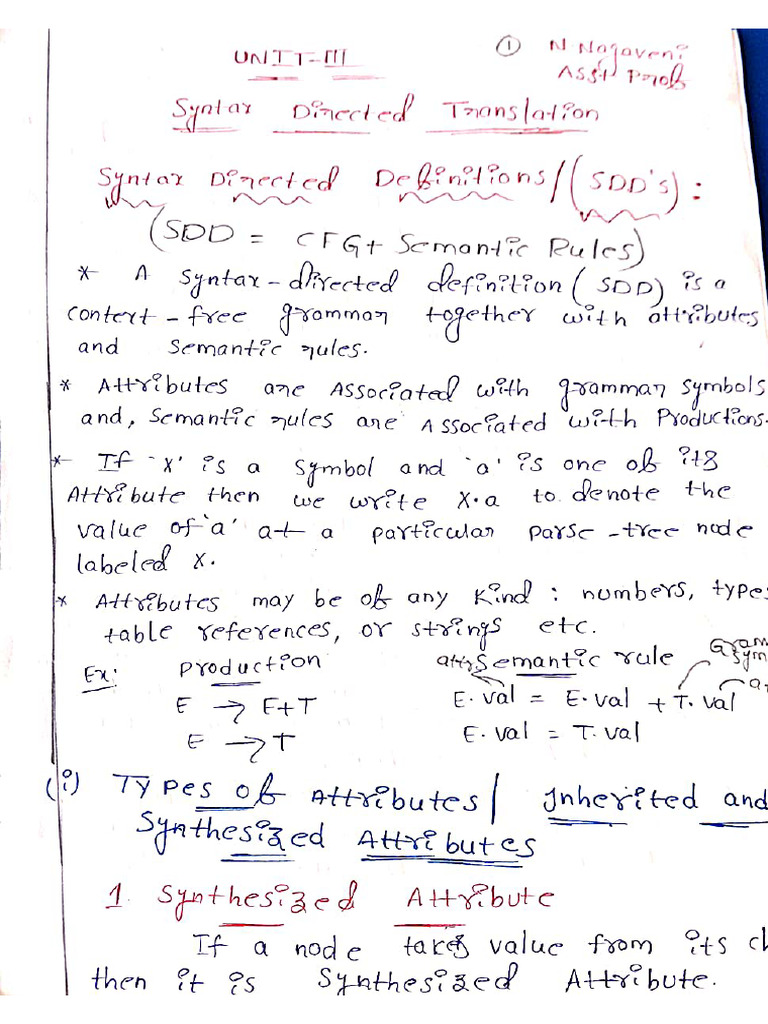 UNIT-III
① N Nagaveni
Asst Prof
Syntax Directed Translation
Syntax Directed Definitions/(SDD's):
(SDD = CFG+ Semantic Rules)
* A syntax-directed definition (SDD) is a
context-free grammar together with attributes
and semantic rules.
* Attributes are Associated with grammar symbols
and, semantic rules are Associated with Productions.
* If 'X' is a symbol and 'a' is one of its
Attribute then we write X.a to denote the
value of 'a' at a particular parse-tree node
labeled X.
* Attributes may be of any kind : numbers, types
table references, or strings etc.
Ex: Production attr Semantic rule Gram
sym
E → E+T E.val = E.val + T.val at
E → T E.val = T.val
(i) Types of Attributes/ Inherited and
Synthesized Attributes
1. Synthesized Attribute
If a node takes value from its ch
then it is Synthesized Attribute.